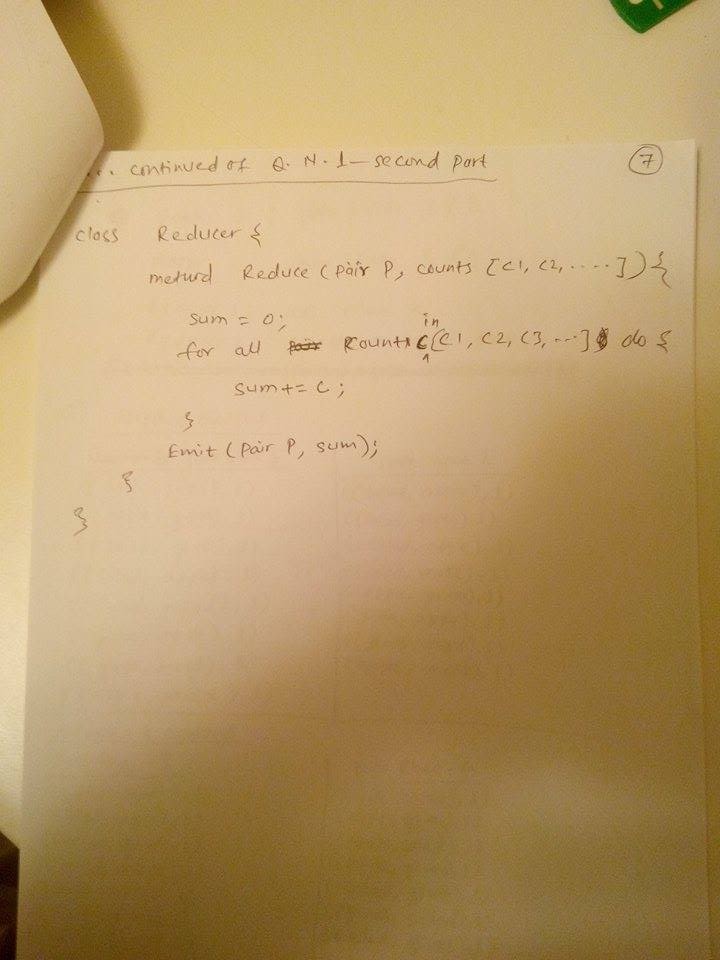 ... continued of Q. N. 1 - second part
7
class Reducer {
meturd Reduce (pair P, counts [C1, C2, .....]) {
sum = 0;
for all count c in [C1, C2, C3, ...] do {
sum += C;
}
Emit (pair P, sum);
}
}